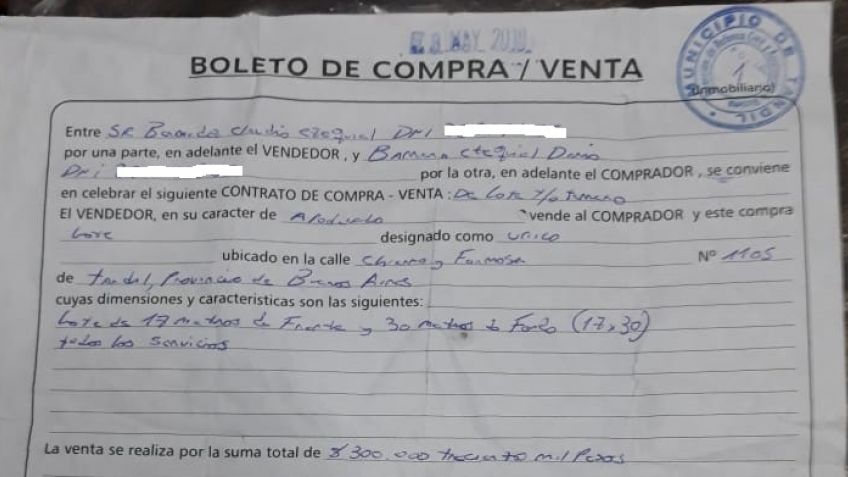 MAY
BOLETO DE COMPRA / VENTA
MUNICIPIO DE TANDIL
1
(Inmobiliario)
Entre SR Claudio Ezequiel DNI
por una parte, en adelante el VENDEDOR, y Ezequiel Dario
DNI por la otra, en adelante el COMPRADOR, se conviene
en celebrar el siguiente CONTRATO DE COMPRA - VENTA: De Lote y/o terreno
El VENDEDOR, en su caracter de Apoderado vende al COMPRADOR y este compra
Lote designado como Unico
ubicado en la calle y Formosa Nº 1105
de Tandil, Provincia de Buenos Aires
cuyas dimensiones y caracteristicas son las siguientes:
Lote de 17 metros de Frente y 30 metros de Fondo (17x30)
todos los servicios
La venta se realiza por la suma total de $ 300.000 mil Pesos